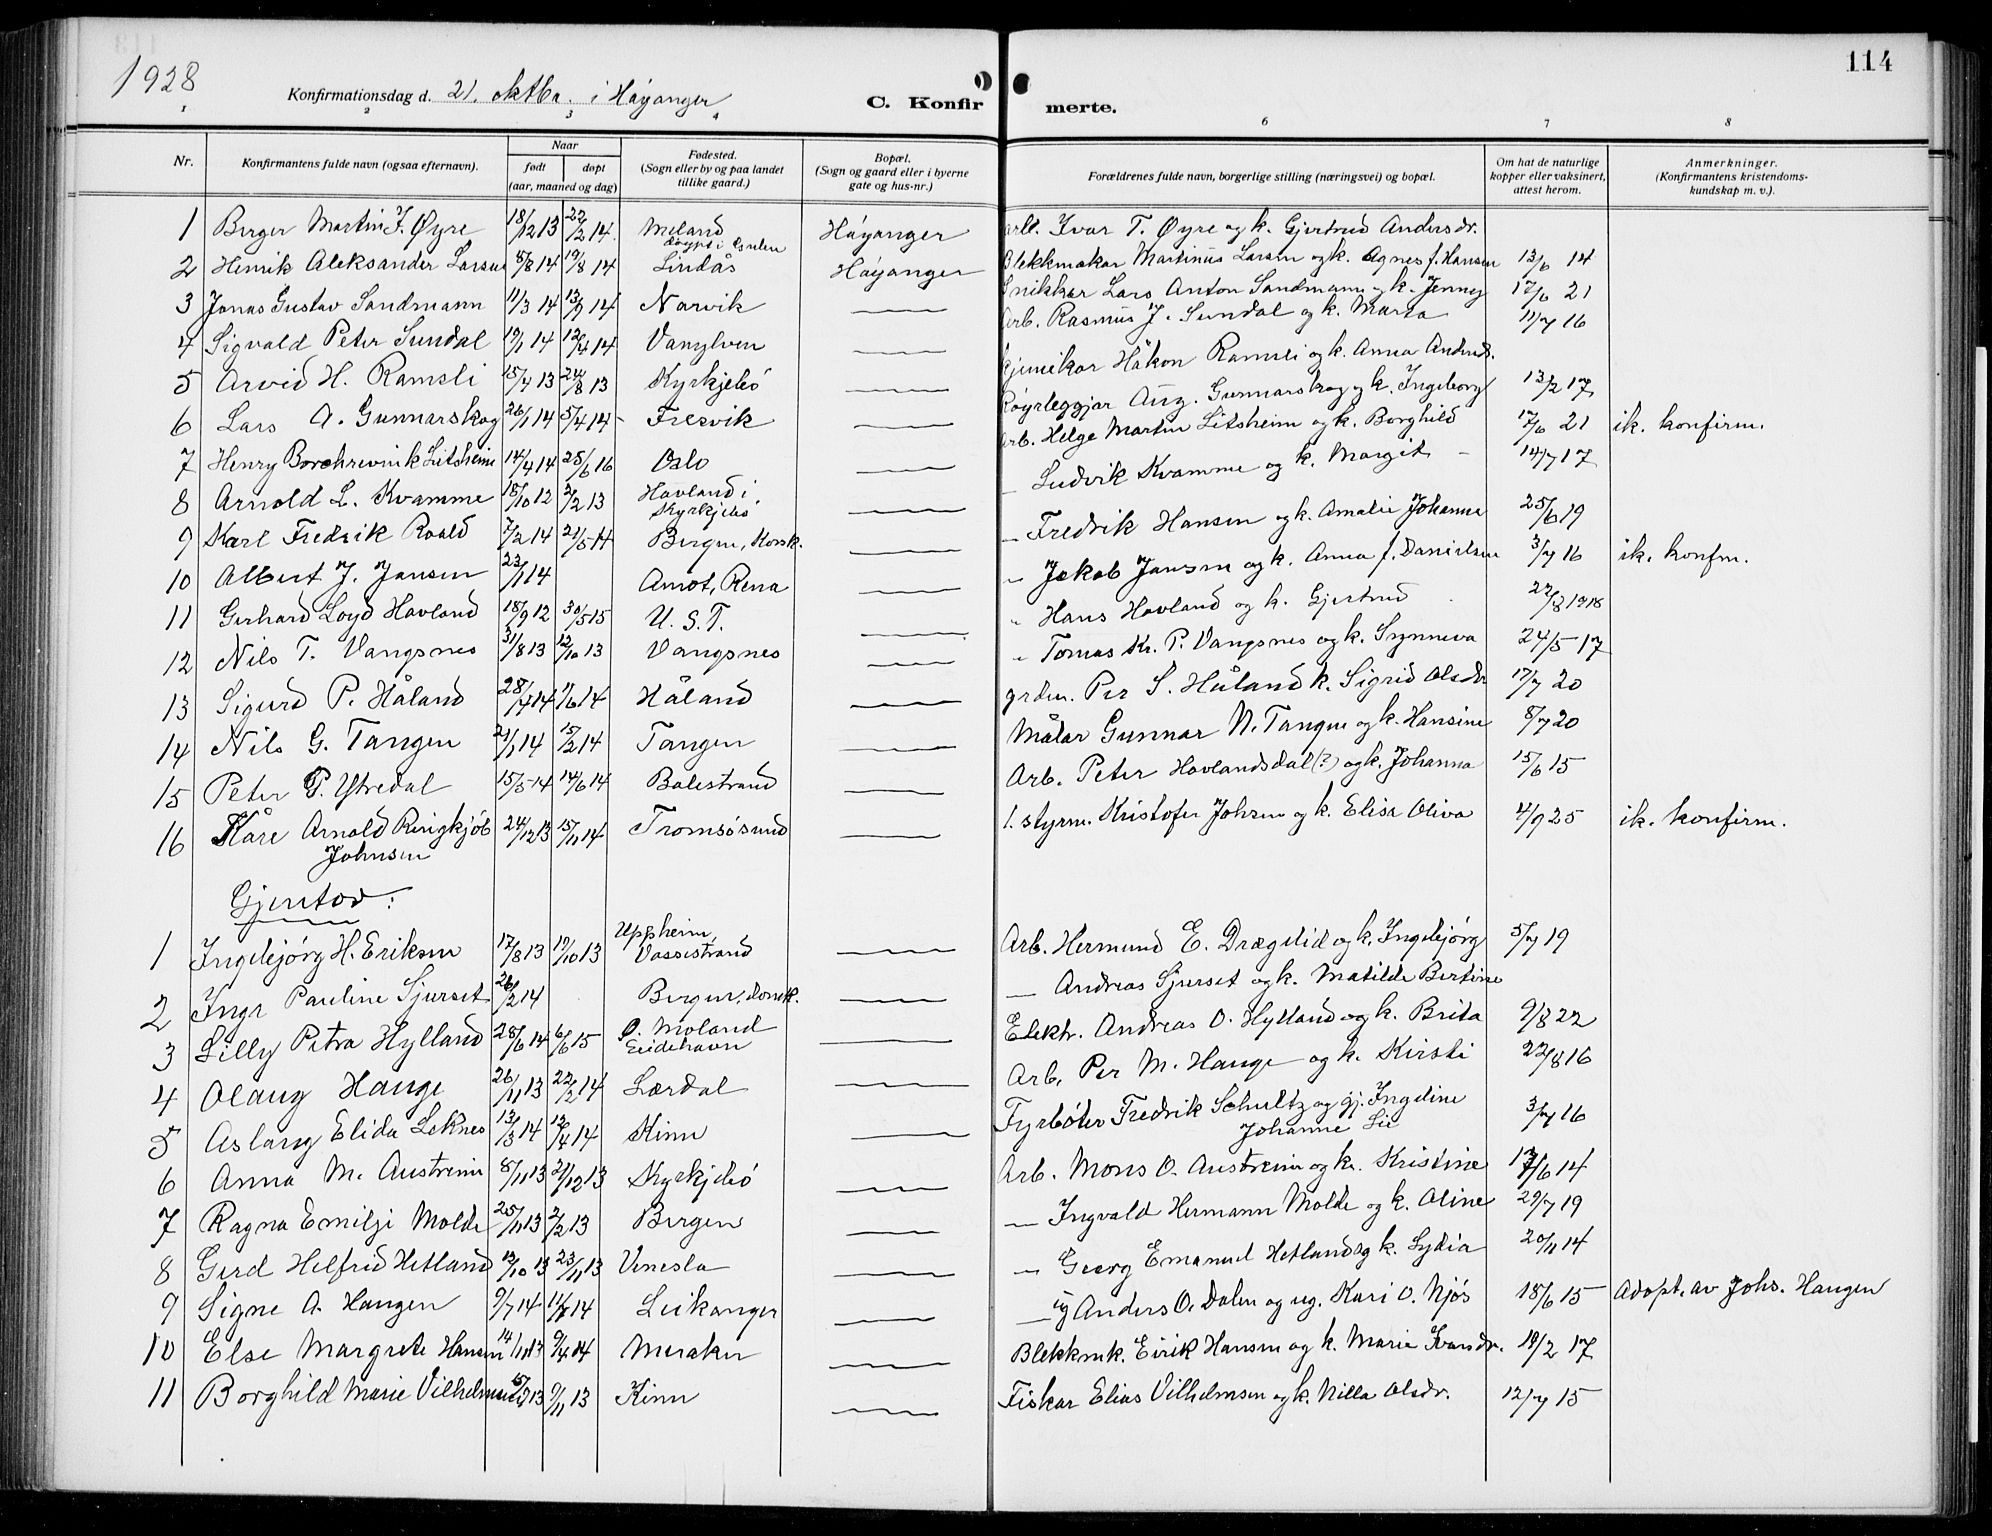 114
1928
Konfirmationsdag d. 21. oktbr. i Høyanger
C. Konfirmerte.
1 2 3 4 6 7 8
Nr.
Konfirmantens fulde navn (ogsaa efternavn).
Naar
født
døpt
(aar, maaned og dag)
Fødested.
(Sogn eller by og paa landet
tillike gaard.)
Bopæl.
(Sogn og gaard eller i byerne
gate og hus-nr.)
Forældrenes fulde navn, borgerlige stilling (næringsvei) og bopæl.
Om hat de naturlige
kopper eller vaksinert,
attest herom.
Anmerkninger.
(Konfirmantens kristendoms-
kundskap m. v.).
1 Birger Martin I. Øyre 18/12 13 22/2 14. Meland døypt i Gulen Høyanger arb. Ivar T. Øyre og k. Gjertrud Andersdr.
2 Henrik Aleksander Larsen 8/8 14 19/8 14 Lindås Høyanger Blekkmakar Martinus Larsen og k. Agnes f. Hansen 13/6 14
3 Jonas Gustav Sandmann 11/3 14 13/9 14 Narvik — Snikkar Lars Anton Sandmann og k. Jenny 17/6 21
4 Sigvald Peter Sundal 19/1 14 12/4 14 Vanylven — Arb. Rasmus J. Sundal og k. Marta 11/7 16
5 Arvid H. Ramsli 15/7 13 24/8 13 Kyrkjebø — Kjemikar Håkon Ramsli og k. Anna Andersd.
6 Lars A. Gunnarskog 26/1 14 5/4 14 Fresvik — Røyrleggjar Aug. Gunnarskog og k. Ingeborg 13/2 17
7 Henry Borchrevink Litsheim 14/4 14 25/6 16 Oslo — Arb. Helge Martin Litsheim og k. Borghild 17/6 21 ik. konfirm.
8 Arnold L. Kvamme 18/10 12 2/2 13 Havland i Kyrkjebø — — Ludvik Kvamme og k. Margit 14/7 17
9 Karl Fredrik Roald 7/2 14 21/5 14 Bergen, Korsk. — — Fredrik Hansen og k. Amalie Johanne 25/6 19
10 Albert J. Jansen 23/1 14 Åmot, Rena — — Jakob Jansen og k. Anna f. Danielsen 3/7 16 ik. konfm.
11 Gerhard Loyd Hovland 18/9 12 30/5 15 U. S. T. — " Hans Hovland og k. Gjertrud 22/3 1918
12 Nils T. Vangsnes 31/8 13 12/10 13 Vangsnes — " Tomas Kr. P. Vangsnes og k. Synneva 24/5 17
13 Sigurd P. Håland 28/4 14 1/6 14 Håland — grdm. Per S. Håland k. Sigrid Olsdr 17/7 20
14 Nils G. Tangen 21/1 14 15/2 14 Tangen — Målar Gunnar N. Tangen og k. Hansine 8/7 20
15 Peter P. Ytredal 15/5 14 14/6 14 Balestrand — Arb. Peter Hovlandsdal(?) og k. Johanna 15/6 15
16 Kåre Arnold Ringkjøb 24/12 13 15/11 14 Tromsøsund — 1. styrm. Kristofer Johsen og k. Elisa Oliva 4/9 25 ik. konfirm.
Johnsen
Gjentor:
1 Ingebjørg H. Eriksen 17/8 13 19/10 13 Uppheim, Vossestrand — Arb. Hermund E. Drægelid og k. Ingebjørg 5/7 19
2 Inga Pauline Sjurset 26/2 14 Bergen, Domk. — — Andreas Sjurset og k. Matilde Bertine
3 Lilly Petra Hylland 28/6 14 6/6 15 O. Moland Eidehavn — Elektr. Andreas O. Hylland og k. Brita 9/8 22
4 Olaug Hauge 26/11 13 22/2 14 Lærdal — Arb. Per M. Hauge og k. Kirsti 22/8 16
5 Aslaug Elida Leknes 13/3 14 13/4 14 Kinn — Fyrbøter Fredrik Schultz og gj. Ingeline 3/7 16
Johanne Lie
6 Anna M. Austreim 8/11 13 21/12 13 Kyrkjebø — Arb. Mons O. Austreim og k. Kristine 13/6 14
7 Ragna Emilji Molde 25/11 13 2/2 13 Bergen — — Ingvald Hermann Molde og k. Oline 29/7 19
8 Gerd Helfrid Hetland 12/10 13 23/11 13 Venesla — — Georg Emanuel Hetland og k. Lydia 20/11 14
9 Signe A. Haugen 9/7 14 11/8 14 Leikanger — — ug Anders O. Dalen og ug. Kari O. Njøs 18/6 15 Adopt. av Johs. Haugen
10 Else Margrete Hansen 14/11 13 9/4 14 Meraker — Blekkmk. Eirik Hansen og k. Marie Ivarsdr. 19/2 17
11 Borghild Marie Vilhelmsen 13 9/11 13 Kinn — Fiskar Elias Vilhelmsen og k. Nilla Olsdr. 12/7 15